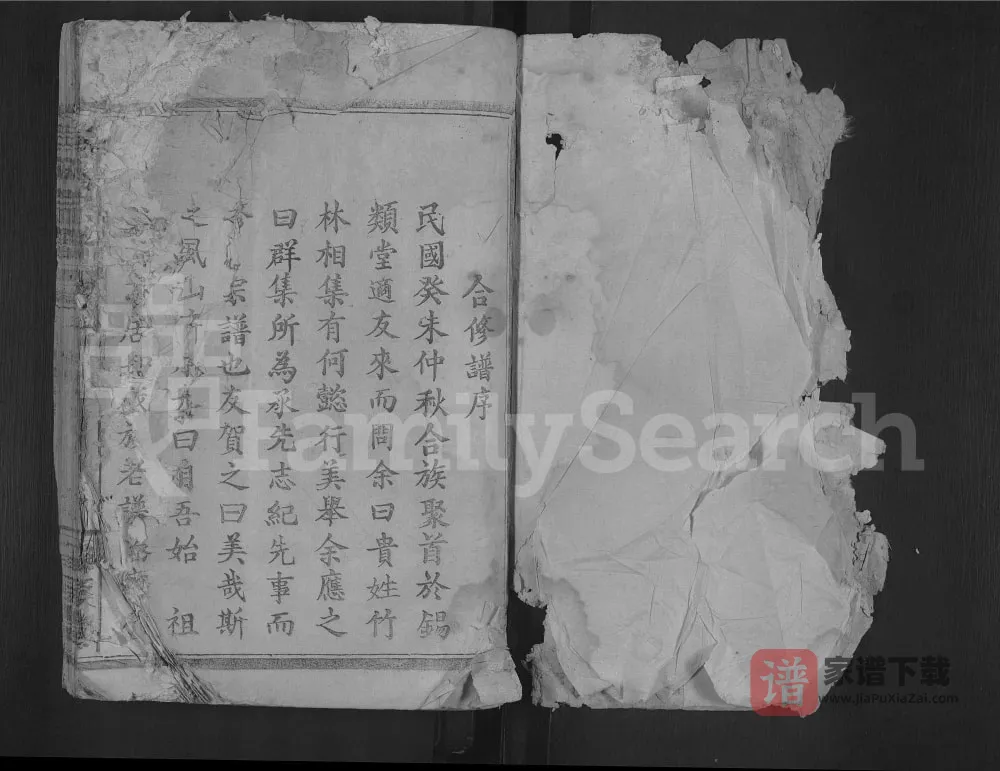 合修譜序
民國癸未仲秋合族聚首於錫
類堂適友來而問余曰貴姓竹
林相集有何懿行美舉余應之
曰群集所為承先志紀先事而
宗譜也友賀之曰美哉斯
之風山曰自吾始祖
居族老謀
FamilySearch
譜
家谱下载
www.JiaPuXiaZai.com